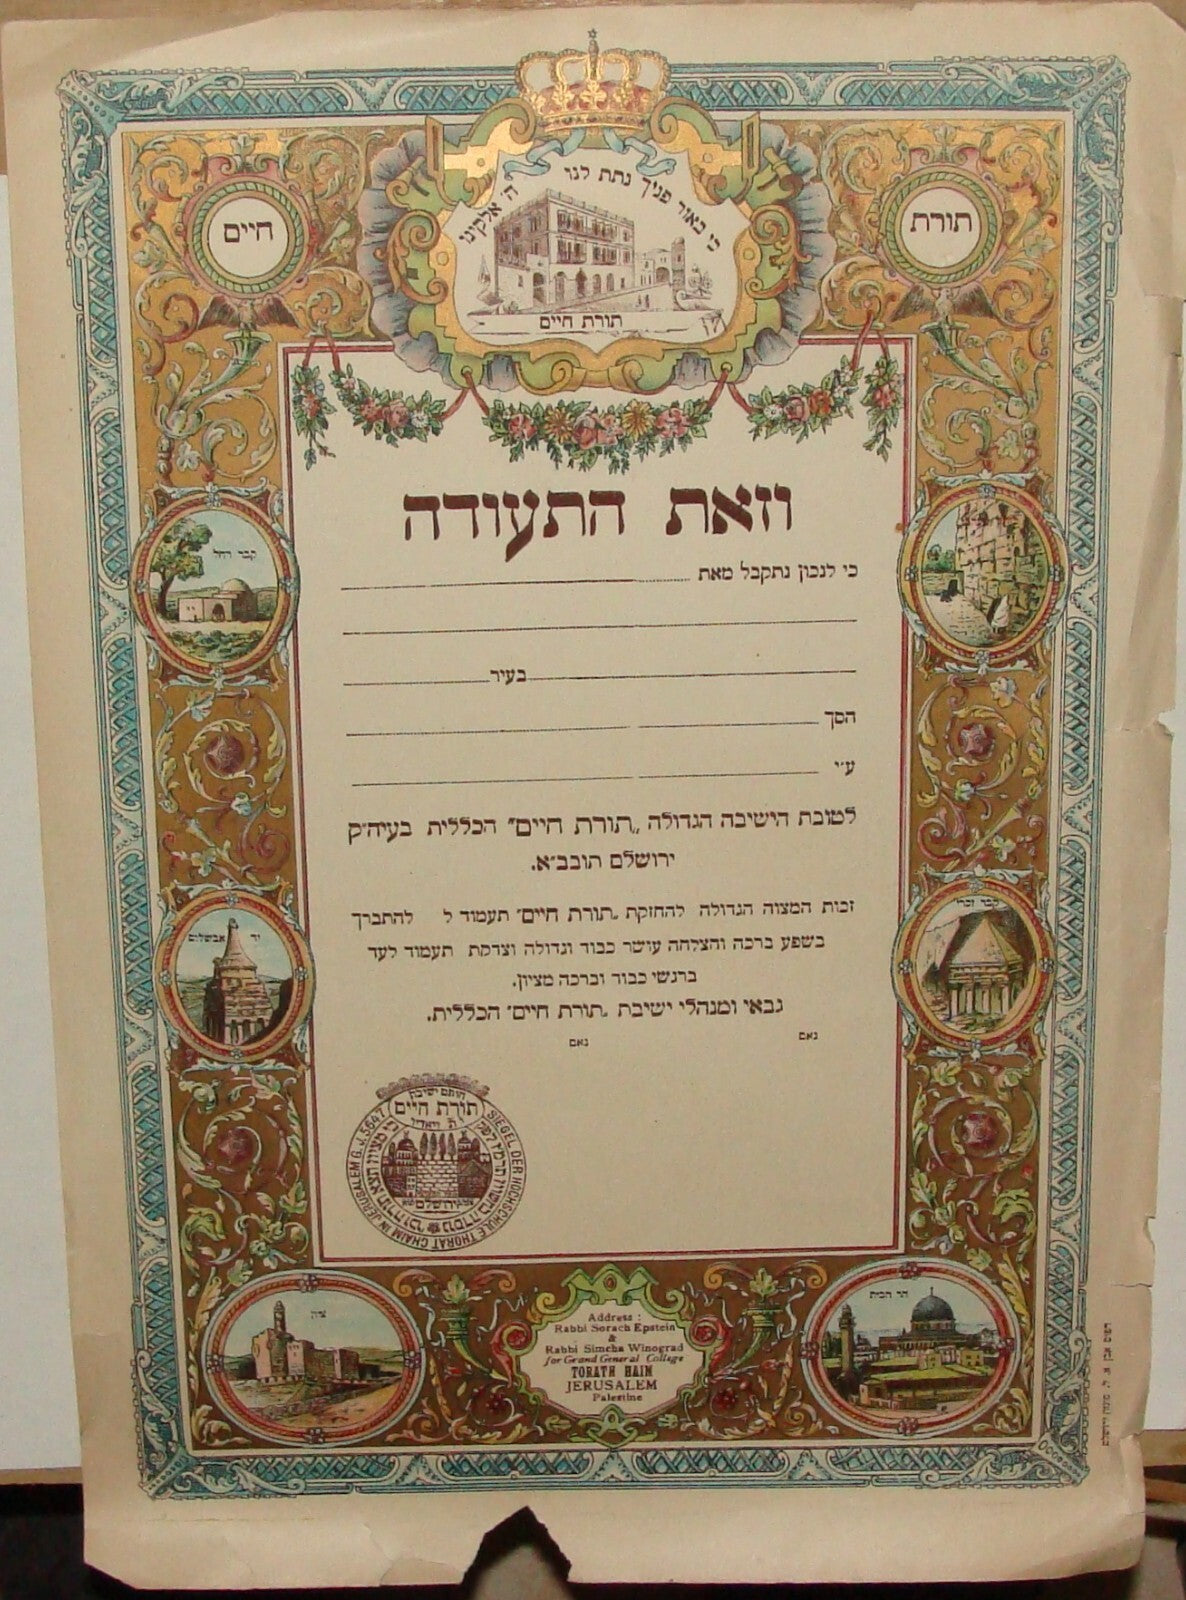 כי באור פניך נתת לנו ה׳ אלקינו
תורת
חיים
תורת חיים
וזאת התעודה
כי לנכון נתקבל מאת
בעיר
הסך
ע״י
לטובת הישיבה הגדולה „תורת חיים” הכללית בעיה״ק
ירושלם תובב״א.
זכות המצוה הגדולה להחזקת „תורת חיים” תעמוד ל להתברך
בשפע ברכה והצלחה עושר כבוד וגדולה וצדקת תעמוד לעד
ברגשי כבוד וברכה מציון.
גבאי ומנהלי ישיבת „תורת חיים” הכללית.
נאם
נאם
קבר רחל
יד אבשלום
קבר זכרי
ציון
הר הבית
חותם ישיבת
תורת חיים
כי מציון תצא תורה
ירושלם
SIEGEL DER HOCHSCHULE THORAT CHAIM IN JERUSALEM G. J. 5647
Address :
Rabbi Sorach Epstein
&
Rabbi Simcha Winograd
for Grand General College
TORATH HAIM
JERUSALEM
Palestine
דפוס אבן א. ל. מונזון ירושלם